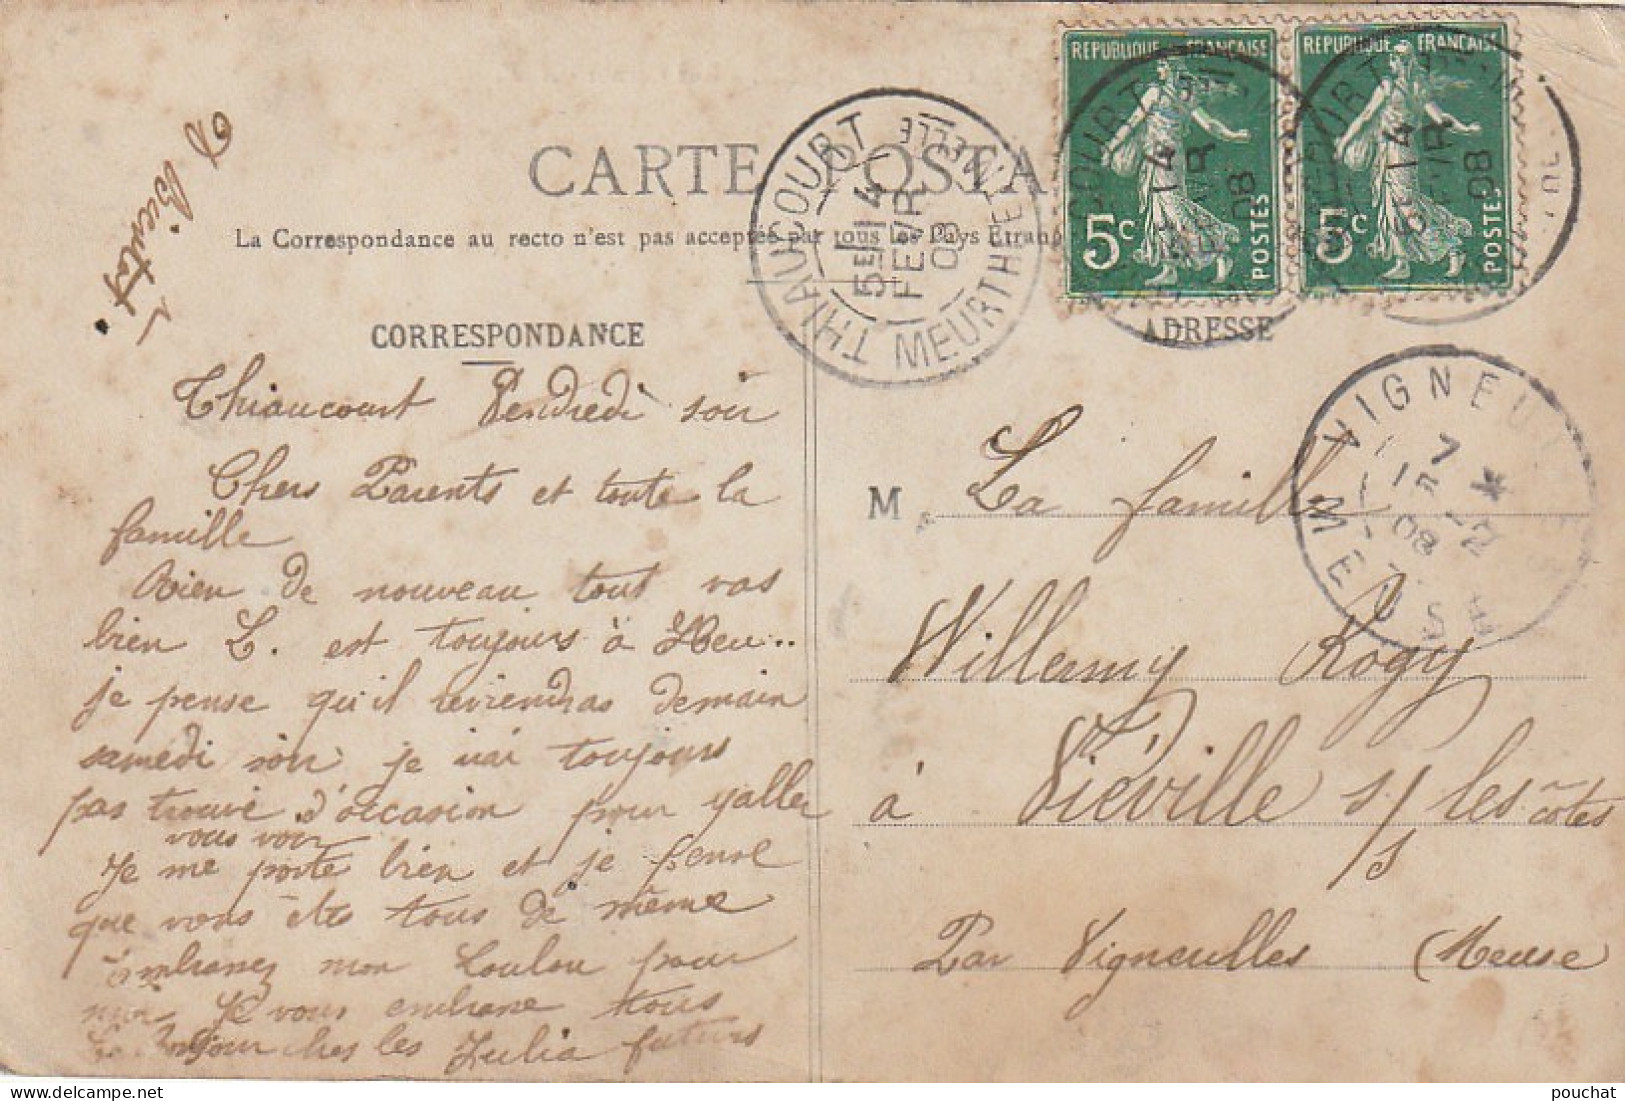 REPUBLIQUE FRANÇAISE
5c
POSTES
REPUBLIQUE FRANÇAISE
5c
POSTES
CARTE POSTA
La Correspondance au recto n'est pas acceptée par tous les Pays Etrang
THIAUCOURT MEURTHE ET MOSELLE
5E 14
FEVR
08
CORRESPONDANCE
ADRESSE
à Bientot
Thiaucourt Vendredi soir
Chers Parents et toute la
famille
Rien de nouveau tout vas
bien L. est toujours à
je pense qu'il reviendras demain
samedi soir je nai toujours
pas trouvé d'occasion pour yaller
vous voir
Je me porte bien et je pense
que vous êtes tous de même
embrassez mon Loulou pour
moi Je vous embrasse tous
Bonjour ches les Julia
VIGNEUL
MEUSE
7
08
M La famille
Willemy Rogy
à Viéville s/s les côtes
Par Vigneulles (Meuse
pouchat